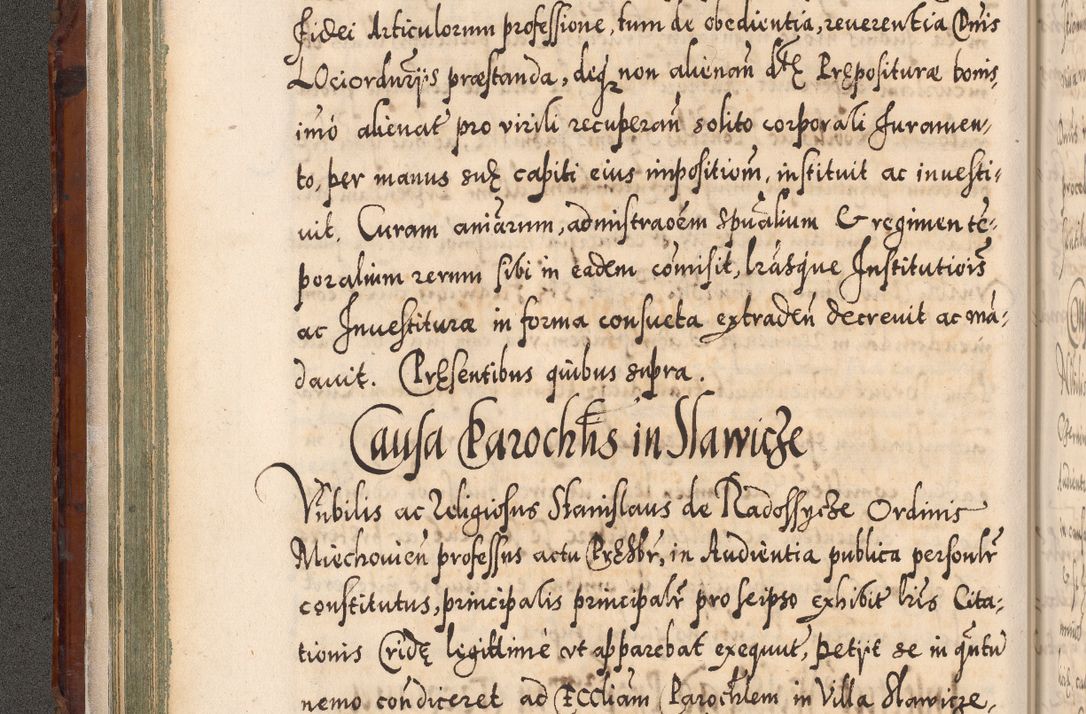 Fidei Articulorum professione, tum de obedientia, reverentia Dnis
LOciordurijs præstanda, deqz non alienan̄ dtę Pręposituræ bonis
imò alienat pro virili recuperan̄ solito corporali Juramen,
to, per manus suę capiti eius impositiom̄, instituit ac investi,
uit. Curam aniarum, admistraoém spūalium & regimen tē,
poralium rerum sibi in eadem cōmisit, lrāsque Institutiois̄
ac Investituræ in forma consueta extraden̄ decrevit ac mā,
dauit. Pręsentibus quibus supra.
Causa Parochlis in Slawicze
Vnbilis ac Religiosus Stanislaus de Radossycze Ordinis
Miechovien̄ professus actu Pręsbr, in Audientia publica personlr̄
constitutus, principalis principalr̄ pro seipso exhibit lrīs Cita,
tionis Cridę legittimè vt apparebat exequut, petijt se in quntū
nemo condiceret ad ECCliam Parochlem in Villa Slawicze,